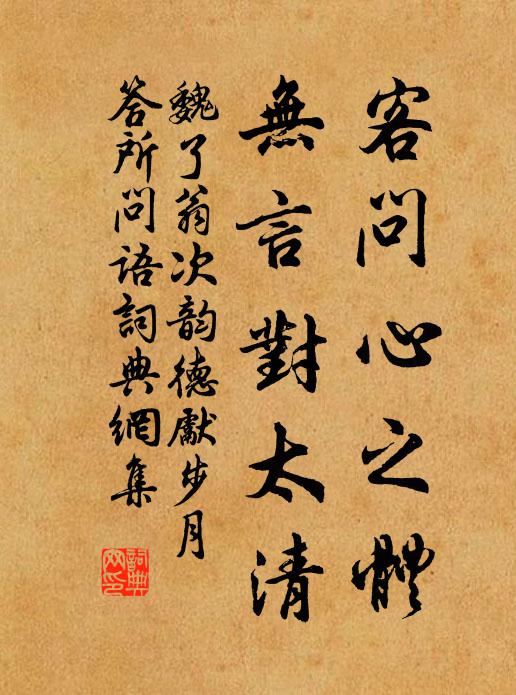 客問心之體
無言對太清
魏了翁次韵德獻步月
答所問語詞典網集
詞典網印